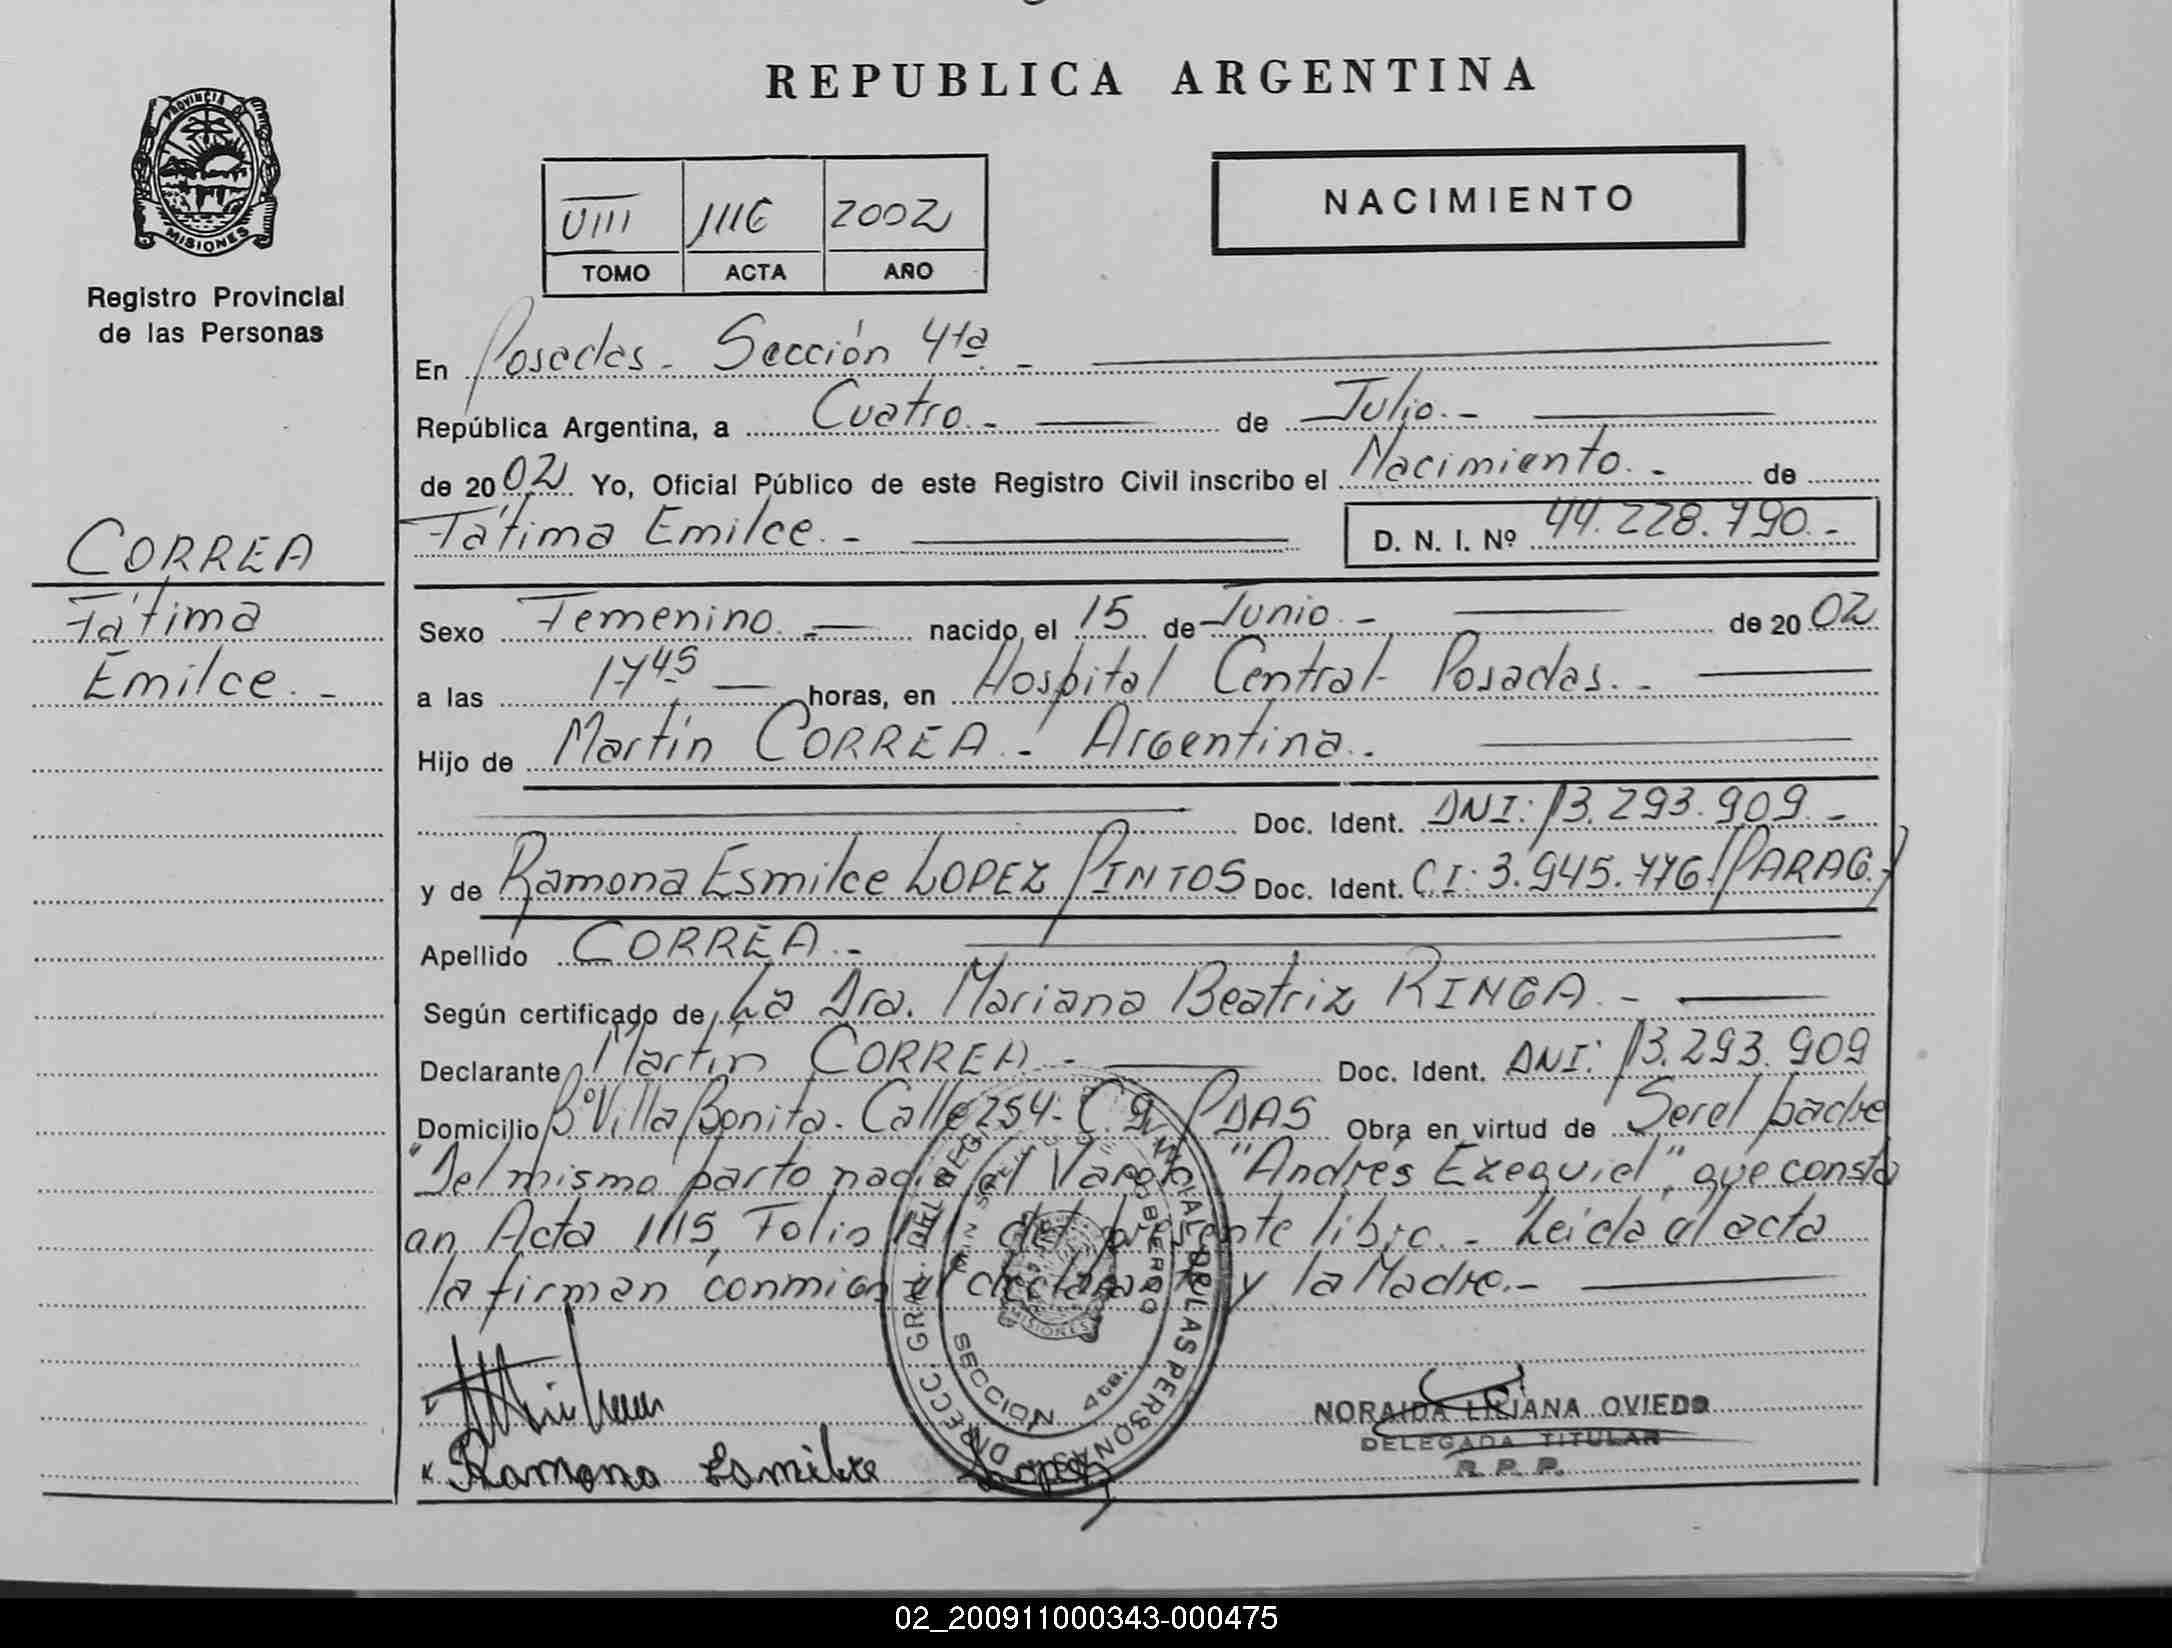 REPUBLICA ARGENTINA
PROVINCIA DE
MISIONES
Registro Provincial
de las Personas
NACIMIENTO
VIII 1116 2002
TOMO ACTA AÑO
En Posadas - Sección 4ta. -
República Argentina, a Cuatro. - de Julio. -
de 2002 Yo, Oficial Público de este Registro Civil inscribo el Nacimiento. - de
Fátima Emilce. - D. N. I. Nº 44.228.790. -
CORREA
Fátima
Emilce. -
Sexo Femenino. - nacido el 15 de Junio. - de 2002
a las 17 45 - horas, en Hospital Central - Posadas. -
Hijo de Martín CORREA. - Argentina. -
Doc. Ident. DNI: 13.293.909. -
y de Ramona Esmilce LOPEZ PINTOS Doc. Ident. C.I: 3.945.776. (PARAG.)
Apellido CORREA. -
Según certificado de La Dra. Mariana Beatriz RINGA. -
Declarante Martín CORREA. - Doc. Ident. DNI: 13.293.909
Domicilio Bº Villa Bonita. Calle 254 - C. 9 PDAS Obra en virtud de Ser el padre
"Del mismo parto nació el Varón "Andrés Exequiel", que consta
en Acta 1115, Folio del presente libro. - Leída el acta
la firman conmigo el declarante y la Madre. -
DIRECC. GRAL. DEL REGI PROVINCIAL DE LAS PERSONAS
GOBIERNO
MISIONES
SECCION 4ta.
Ramona Esmilce Lopez
NORAIDA LILIANA OVIEDO
DELEGADA TITULAR
R. P. P.
02_200911000343-000475